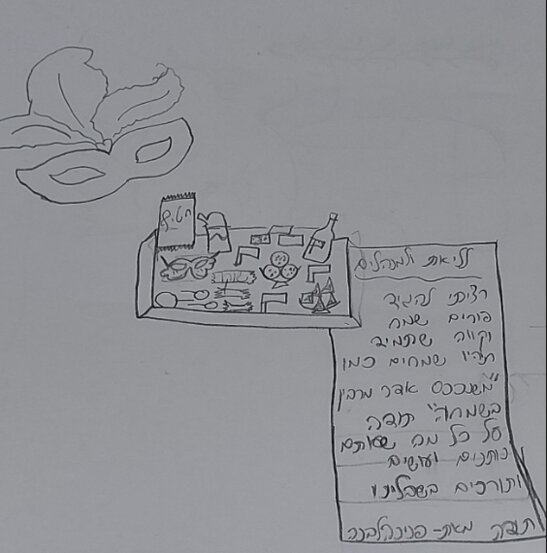 חטיף
לליאת ולמנהלים
רציתי להגיד
פורים שמח
וקווה שתמיד
תהיו שמחים כמו
"משנכנס אדר מרבין
בשמחה" תודה
על כל מה שאתם
נותנים ועושים
ותורמים בשבילינו
תודה מאת-